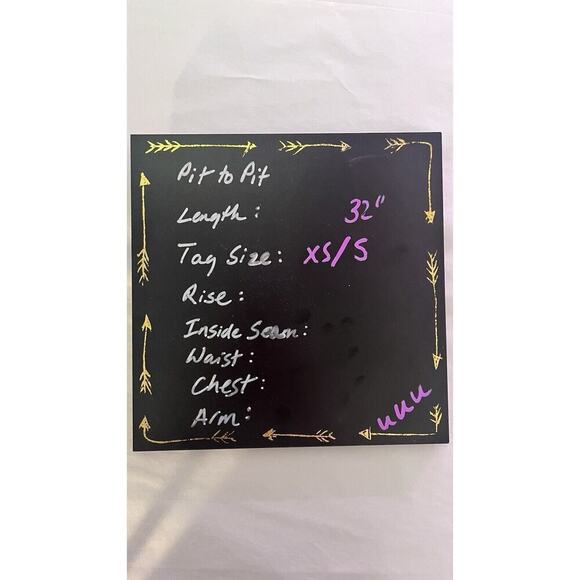 Pit to Pit
Length: 32"
Tag Size: XS/S
Rise:
Inside Seam:
Waist:
Chest:
Arm:
uuu